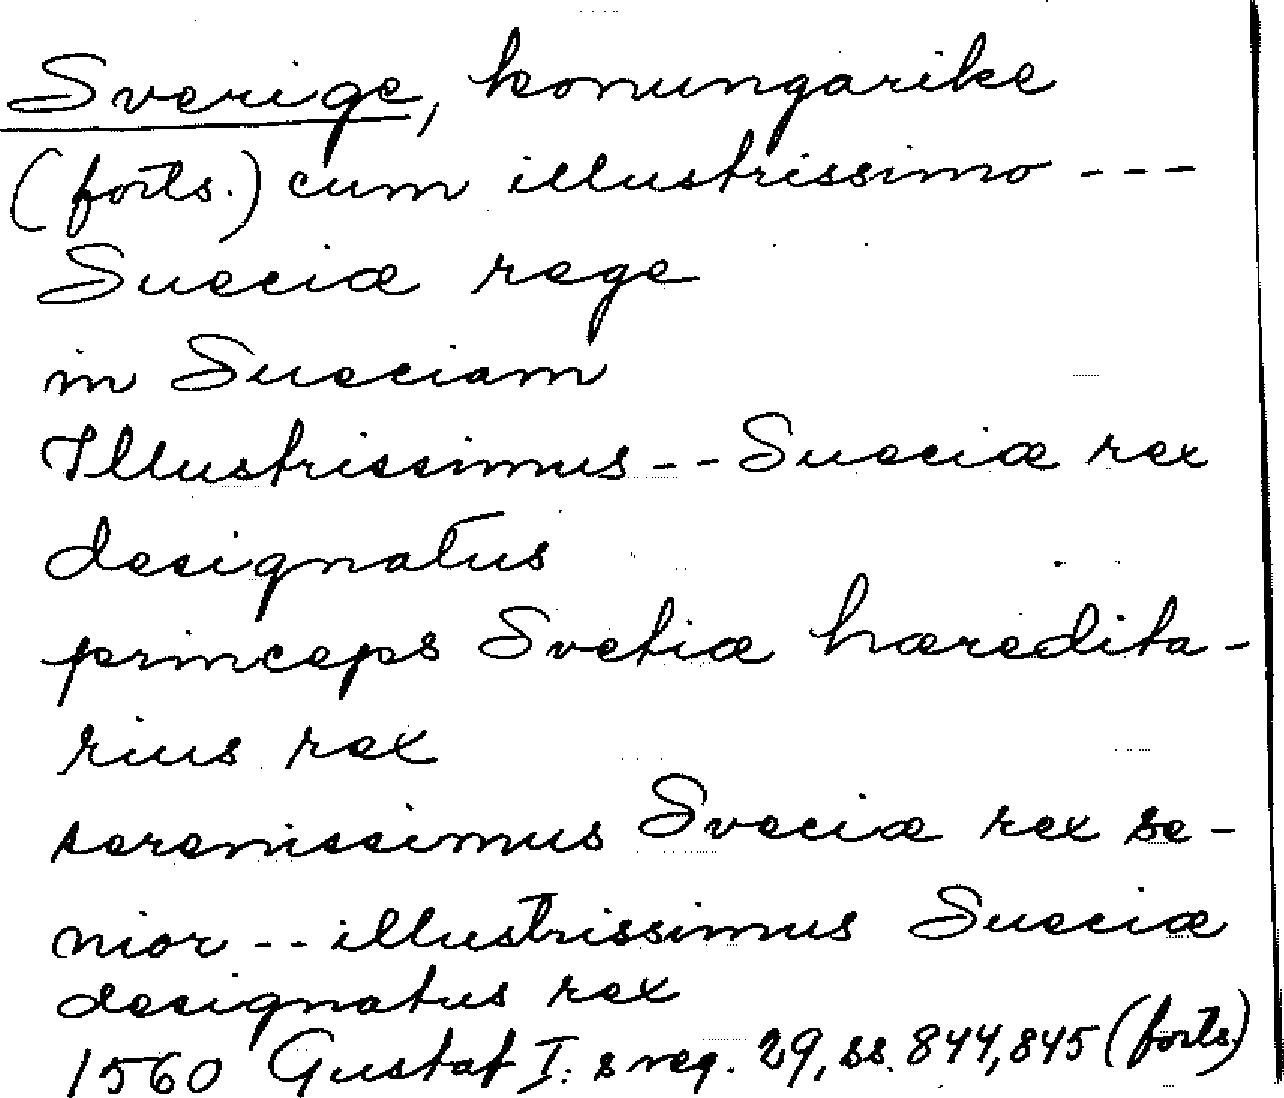 Sverige, konungarike
(forts.) cum illustrissimo ---
Sueciæ rege
in Sueciam
Illustrissimus -- Sueciæ rex
designatus
princeps Svetiæ hæredita-
rius rex
serenissimus Sveciæ rex se-
nior -- illustrissimus Sueciæ
designatus rex
1560 Gustaf I:s reg. 29, ss. 844, 845 (forts.)